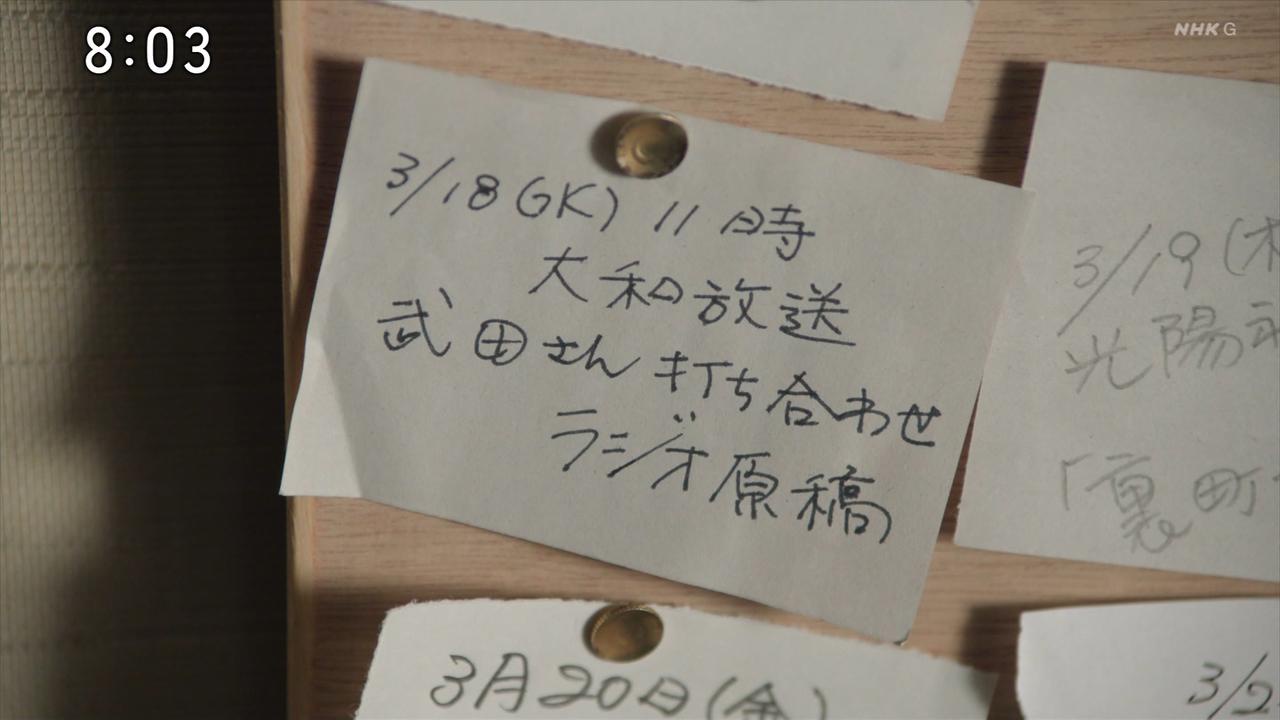 8:03
NHK G
3/18(水) 11時
大和放送
武田さん 打ち合わせ
ラジオ原稿
3/19(木
光陽
「裏町
3月20日(金)
3/2